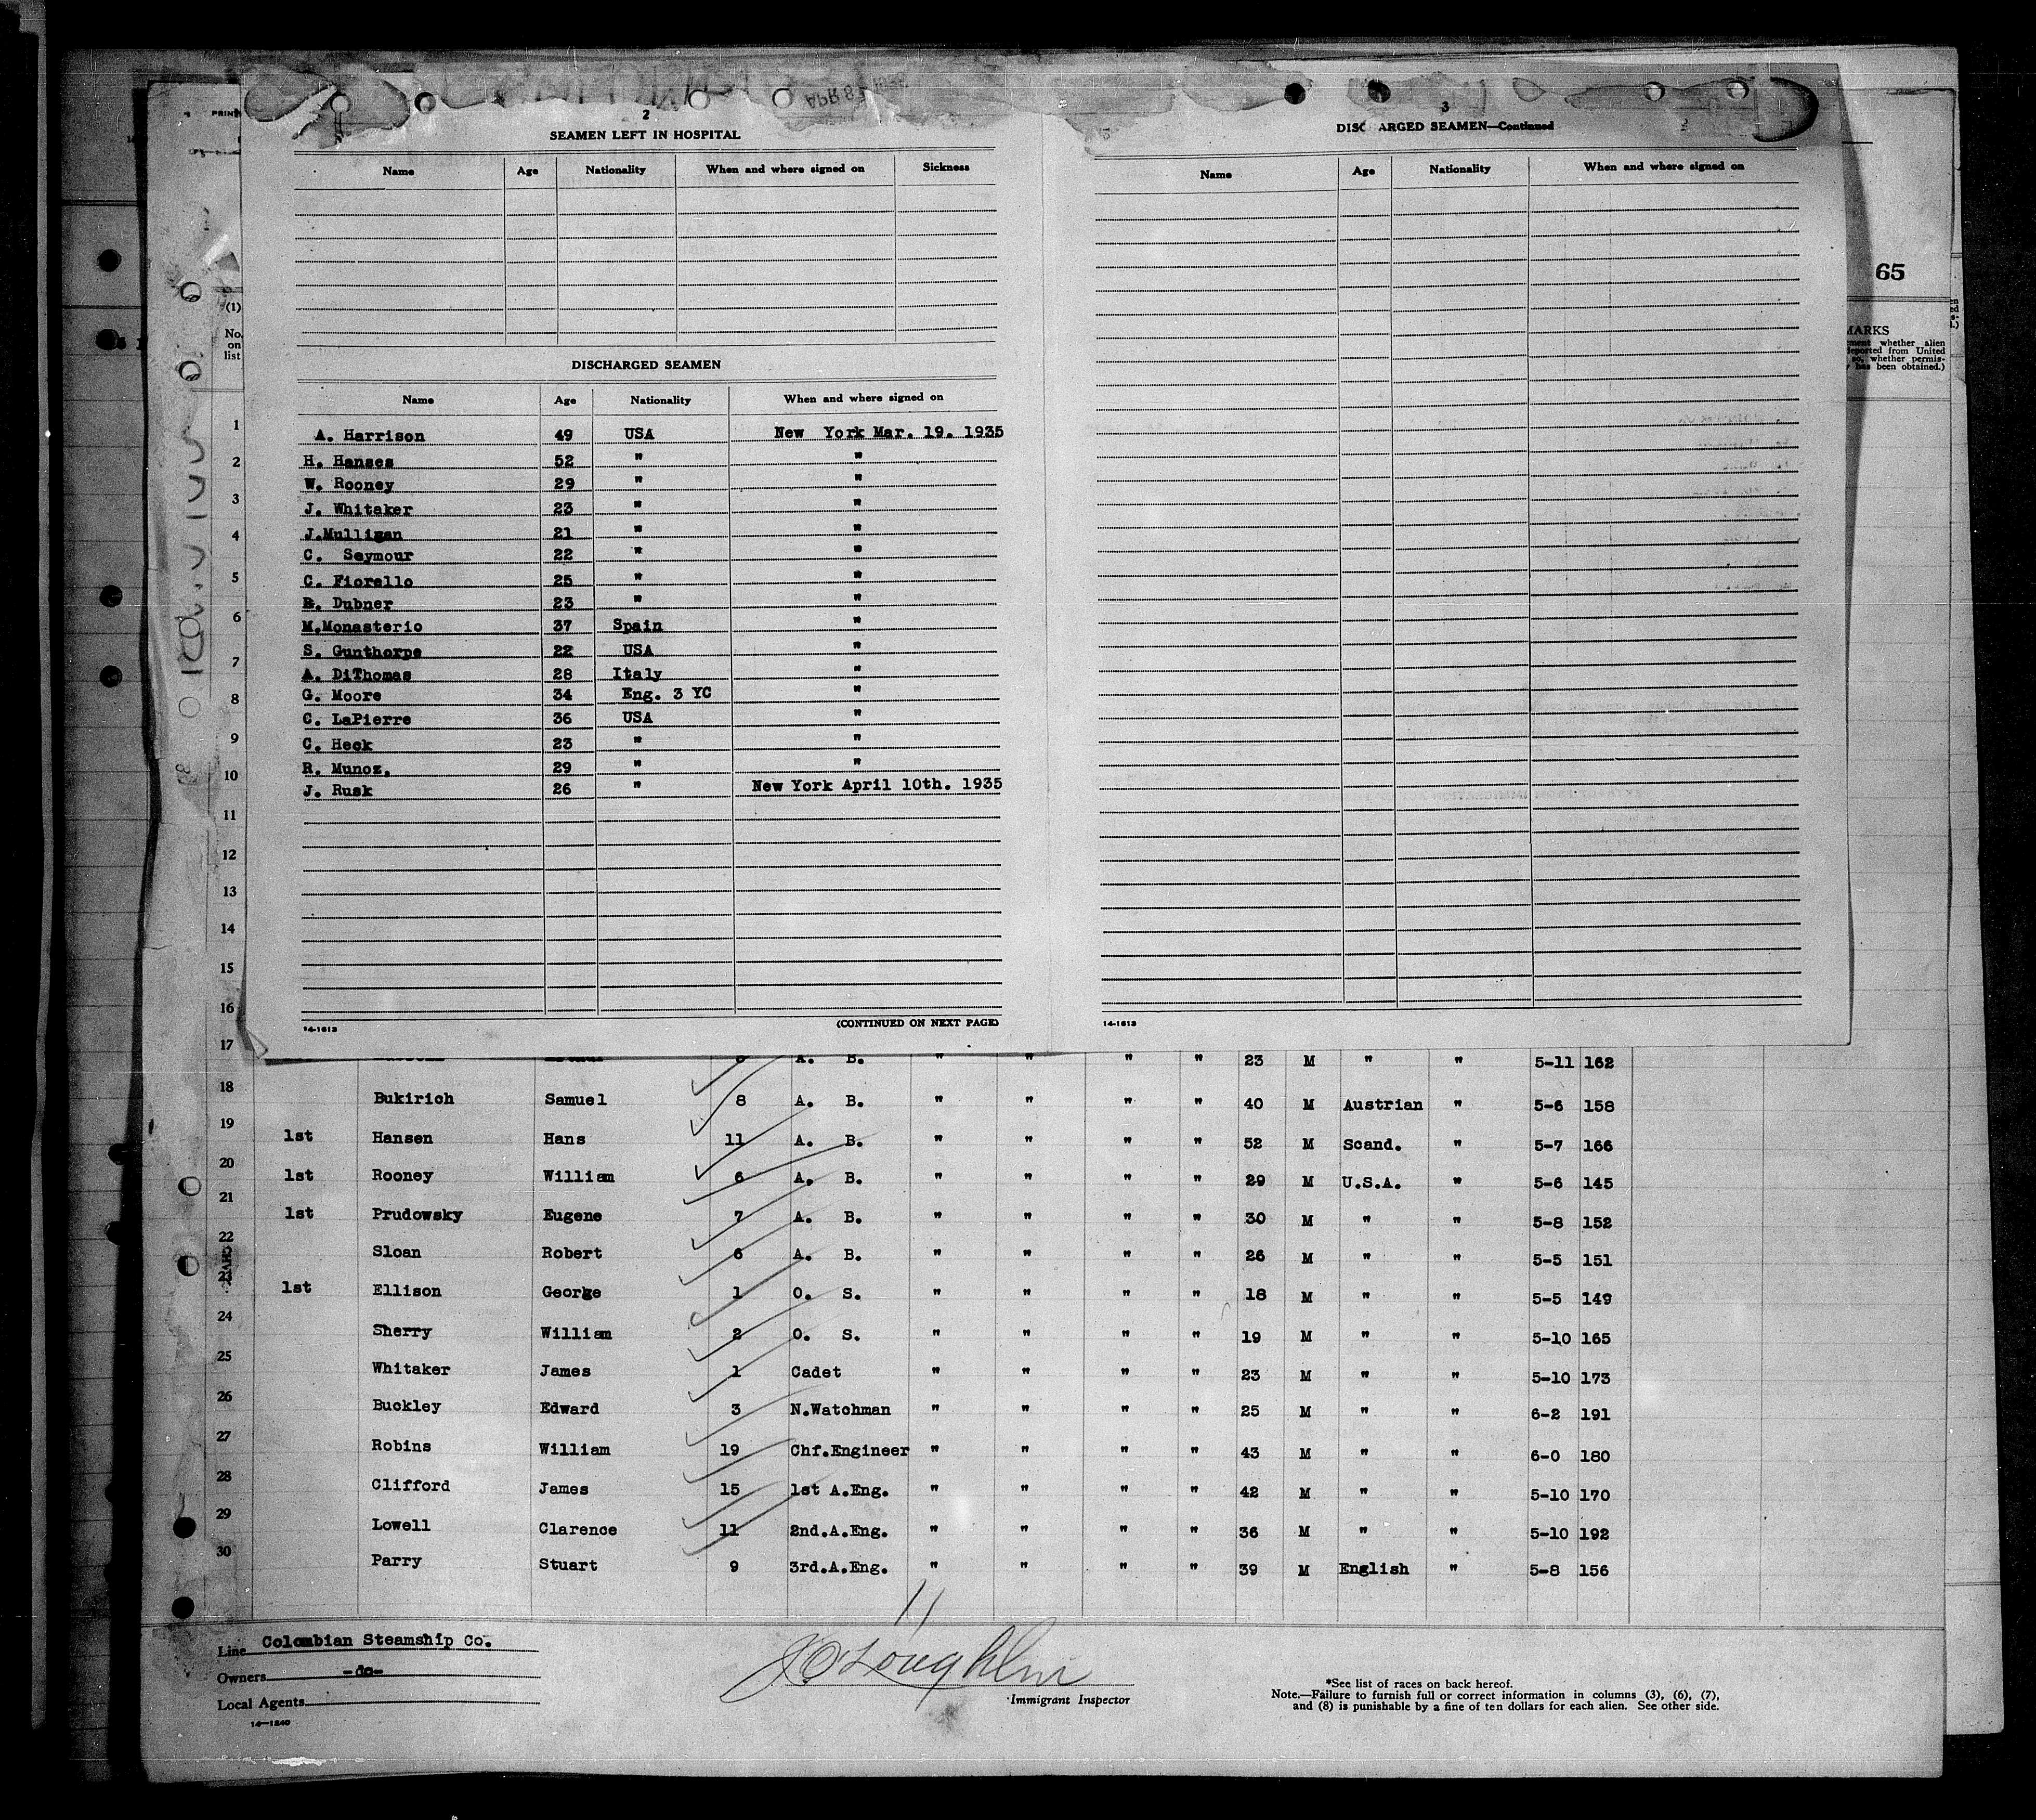 2
SEAMEN LEFT IN HOSPITAL
Name Age Nationality When and where signed on Sickness
DISCHARGED SEAMEN
Name Age Nationality When and where signed on
A. Harrison 49 USA New York Mar. 19. 1935
H. Hanses 52 " "
W. Rooney 29 " "
J. Whitaker 23 " "
J.Mulligan 21 " "
C. Seymour 22 " "
C. Fiorello 25 " "
B. Dubner 23 " "
M.Monasterio 37 Spain "
S. Gunthorpe 22 USA "
A. DiThomas 28 Italy "
G. Moore 34 Eng. 3 YC "
C. LaPierre 36 USA "
C. Heck 23 " "
R. Munoz. 29 " "
J. Rusk 26 " New York April 10th. 1935
14-1613 (CONTINUED ON NEXT PAGE)
3
DISCHARGED SEAMEN—Continued
Name Age Nationality When and where signed on
14-1613
APR 8
65
MARKS
whether alien
from United
so, whether permis-
has been obtained.)
(1)
No.
on
list
1
2
3
4
5
6
7
8
9
10
11
12
13
14
15
16
17 A. B. " " " " 23 M " " 5-11 162
18 Bukirich Samuel 8 A. B. " " " " 40 M Austrian " 5-6 158
19 1st Hansen Hans 11 A. B. " " " " 52 M Scand. " 5-7 166
20 1st Rooney William 6 A. B. " " " " 29 M U.S.A. " 5-6 145
21 1st Prudowsky Eugene 7 A. B. " " " " 30 M " " 5-8 152
22 Sloan Robert 6 A. B. " " " " 26 M " " 5-5 151
23 1st Ellison George 1 O. S. " " " " 18 M " " 5-5 149
24 Sherry William 2 O. S. " " " " 19 M " " 5-10 165
25 Whitaker James 1 Cadet " " " " 23 M " " 5-10 173
26 Buckley Edward 3 N.Watchman " " " " 25 M " " 6-2 191
27 Robins William 19 Chf.Engineer " " " " 43 M " " 6-0 180
28 Clifford James 15 1st A.Eng. " " " " 42 M " " 5-10 170
29 Lowell Clarence 11 2nd.A.Eng. " " " " 36 M " " 5-10 192
30 Parry Stuart 9 3rd.A.Eng. " " " " 39 M English " 5-8 156
Line Colombian Steamship Co.
Owners -do-
Local Agents
14-1240
J O'Loughlin
Immigrant Inspector
*See list of races on back hereof.
Note.—Failure to furnish full or correct information in columns (3), (6), (7),
and (8) is punishable by a fine of ten dollars for each alien. See other side.